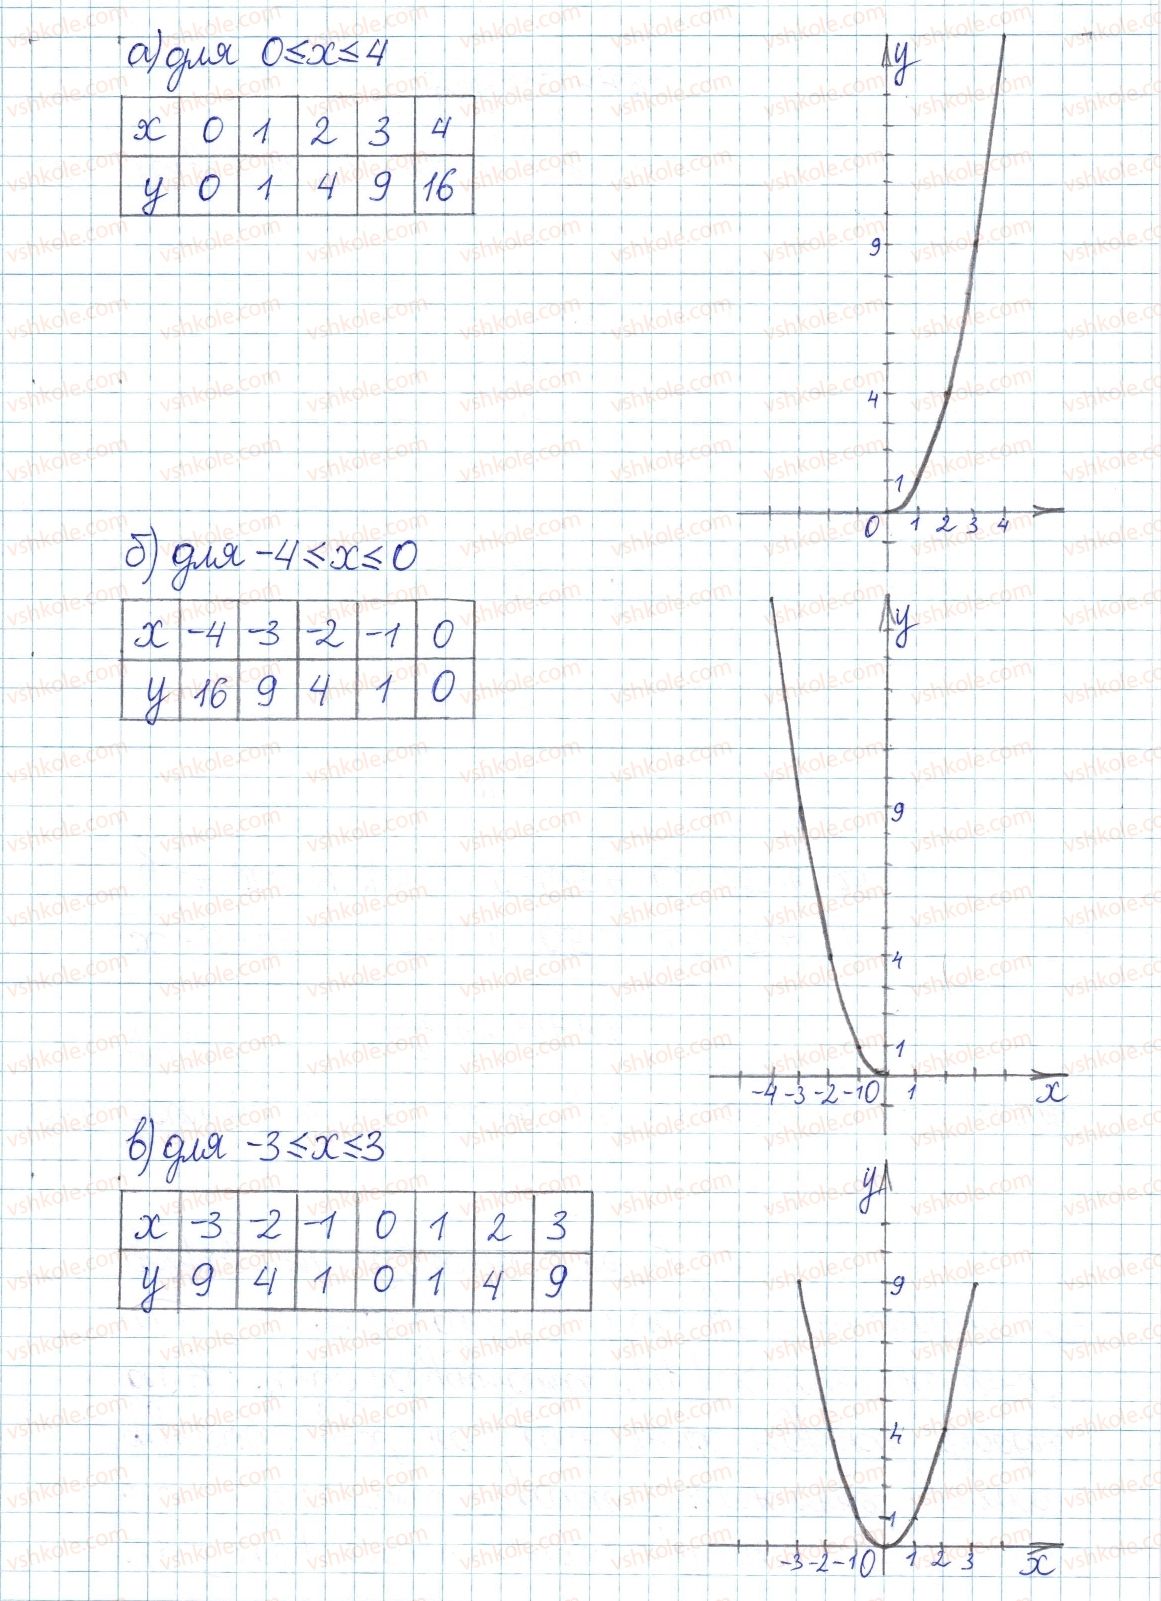 а) для 0≤x≤4
x 0 1 2 3 4
y 0 1 4 9 16
y
9
4
1
0 1 2 3 4
б) для -4≤x≤0
x -4 -3 -2 -1 0
y 16 9 4 1 0
y
9
4
1
-4 -3 -2 -1 0 1 x
в) для -3≤x≤3
x -3 -2 -1 0 1 2 3
y 9 4 1 0 1 4 9
y
9
4
1
-3 -2 -1 0 1 2 3 x
vshkole.com